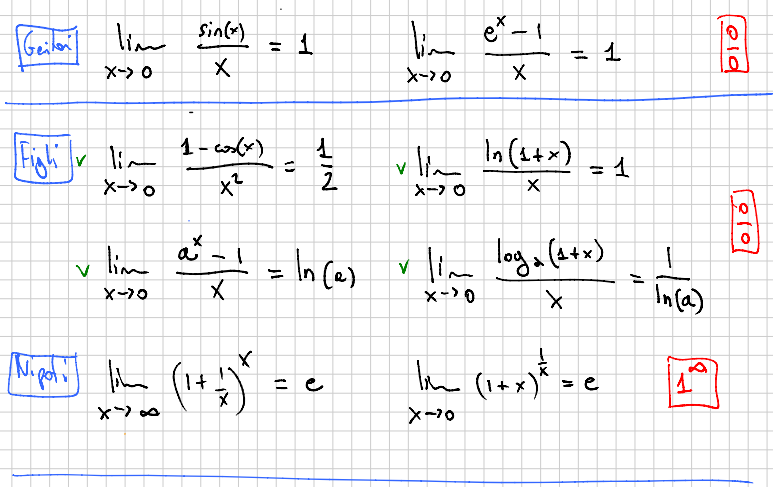 Genitori lim x→0 sin(x)/x = 1 lim x→0 (e^x - 1)/x = 1 0/0
Figli v lim x→0 (1 - cos(x))/x² = 1/2 v lim x→0 ln(1+x)/x = 1
0/0
v lim x→0 (a^x - 1)/x = ln(a) v lim x→0 log_a(1+x)/x = 1/ln(a)
Nipoti lim x→∞ (1 + 1/x)^x = e lim x→0 (1+x)^(1/x) = e 1^∞